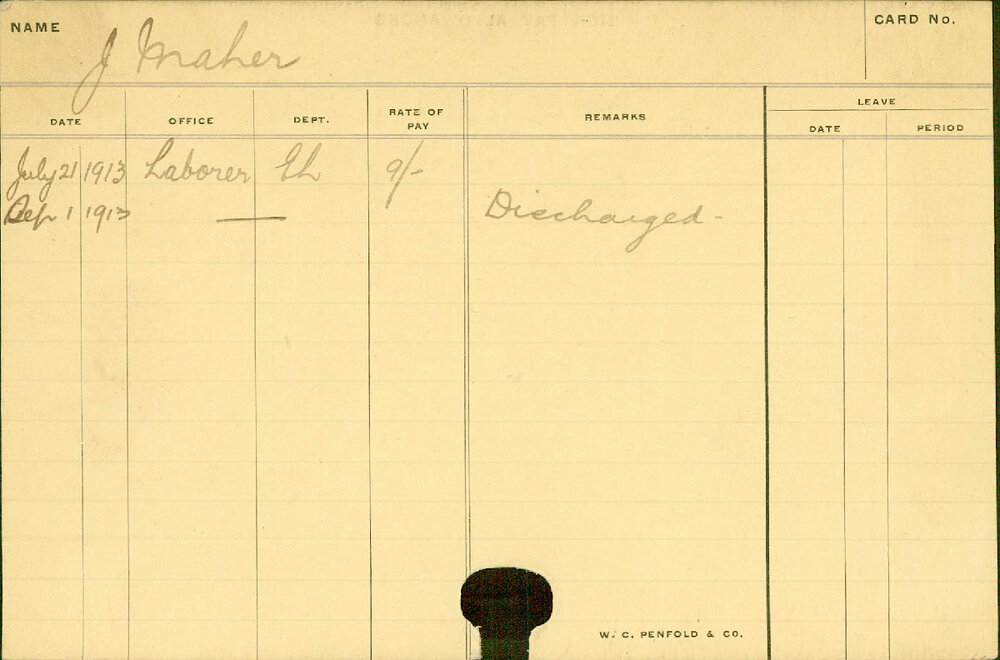 NAME J Maher CARD No.
LEAVE
DATE OFFICE DEPT. RATE OF PAY REMARKS DATE PERIOD
July 21 1913 Laborer 9/-
Sep 1 1913 — Discharged -
W. C. PENFOLD & CO.